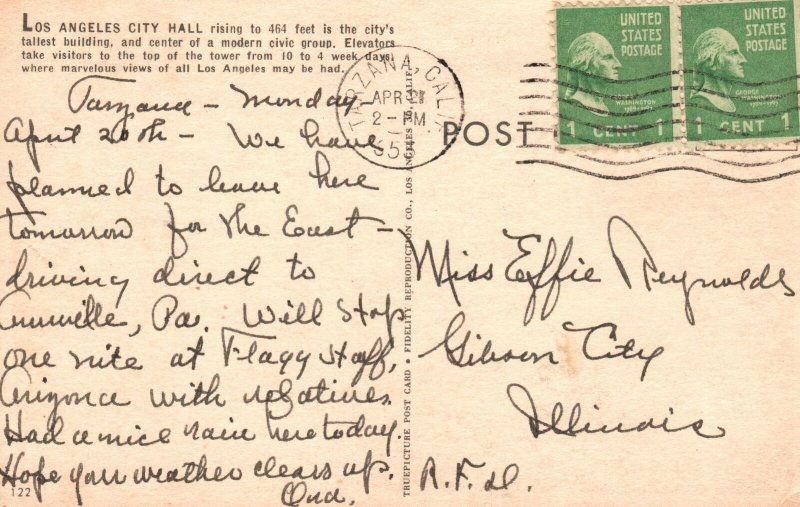 LOS ANGELES CITY HALL rising to 464 feet is the city's
tallest building, and center of a modern civic group. Elevators
take visitors to the top of the tower from 10 to 4 week days,
where marvelous views of all Los Angeles may be had.
Tarzana - Monday
April 20th - We have
planned to leave here
tomorrow for the East -
driving direct to
Annville, Pa. Will stop
one nite at Flagg Staff,
Arizona with relatives.
Had a nice rain here today.
Hope your weather clears up.
Ona.
122
TARZANA, CALIF.
APR 21
2 - PM
POST
UNITED
STATES
POSTAGE
WASHINGTON
1 CENT 1
UNITED
STATES
POSTAGE
GEORGE
WASHINGTON
1 CENT 1
TRUEPICTURE POST CARD • FIDELITY REPRODUCTION CO., LOS ANGELES CALIF.
Miss Effie Reynolds
Gibson City
Illinois
R.F.D.